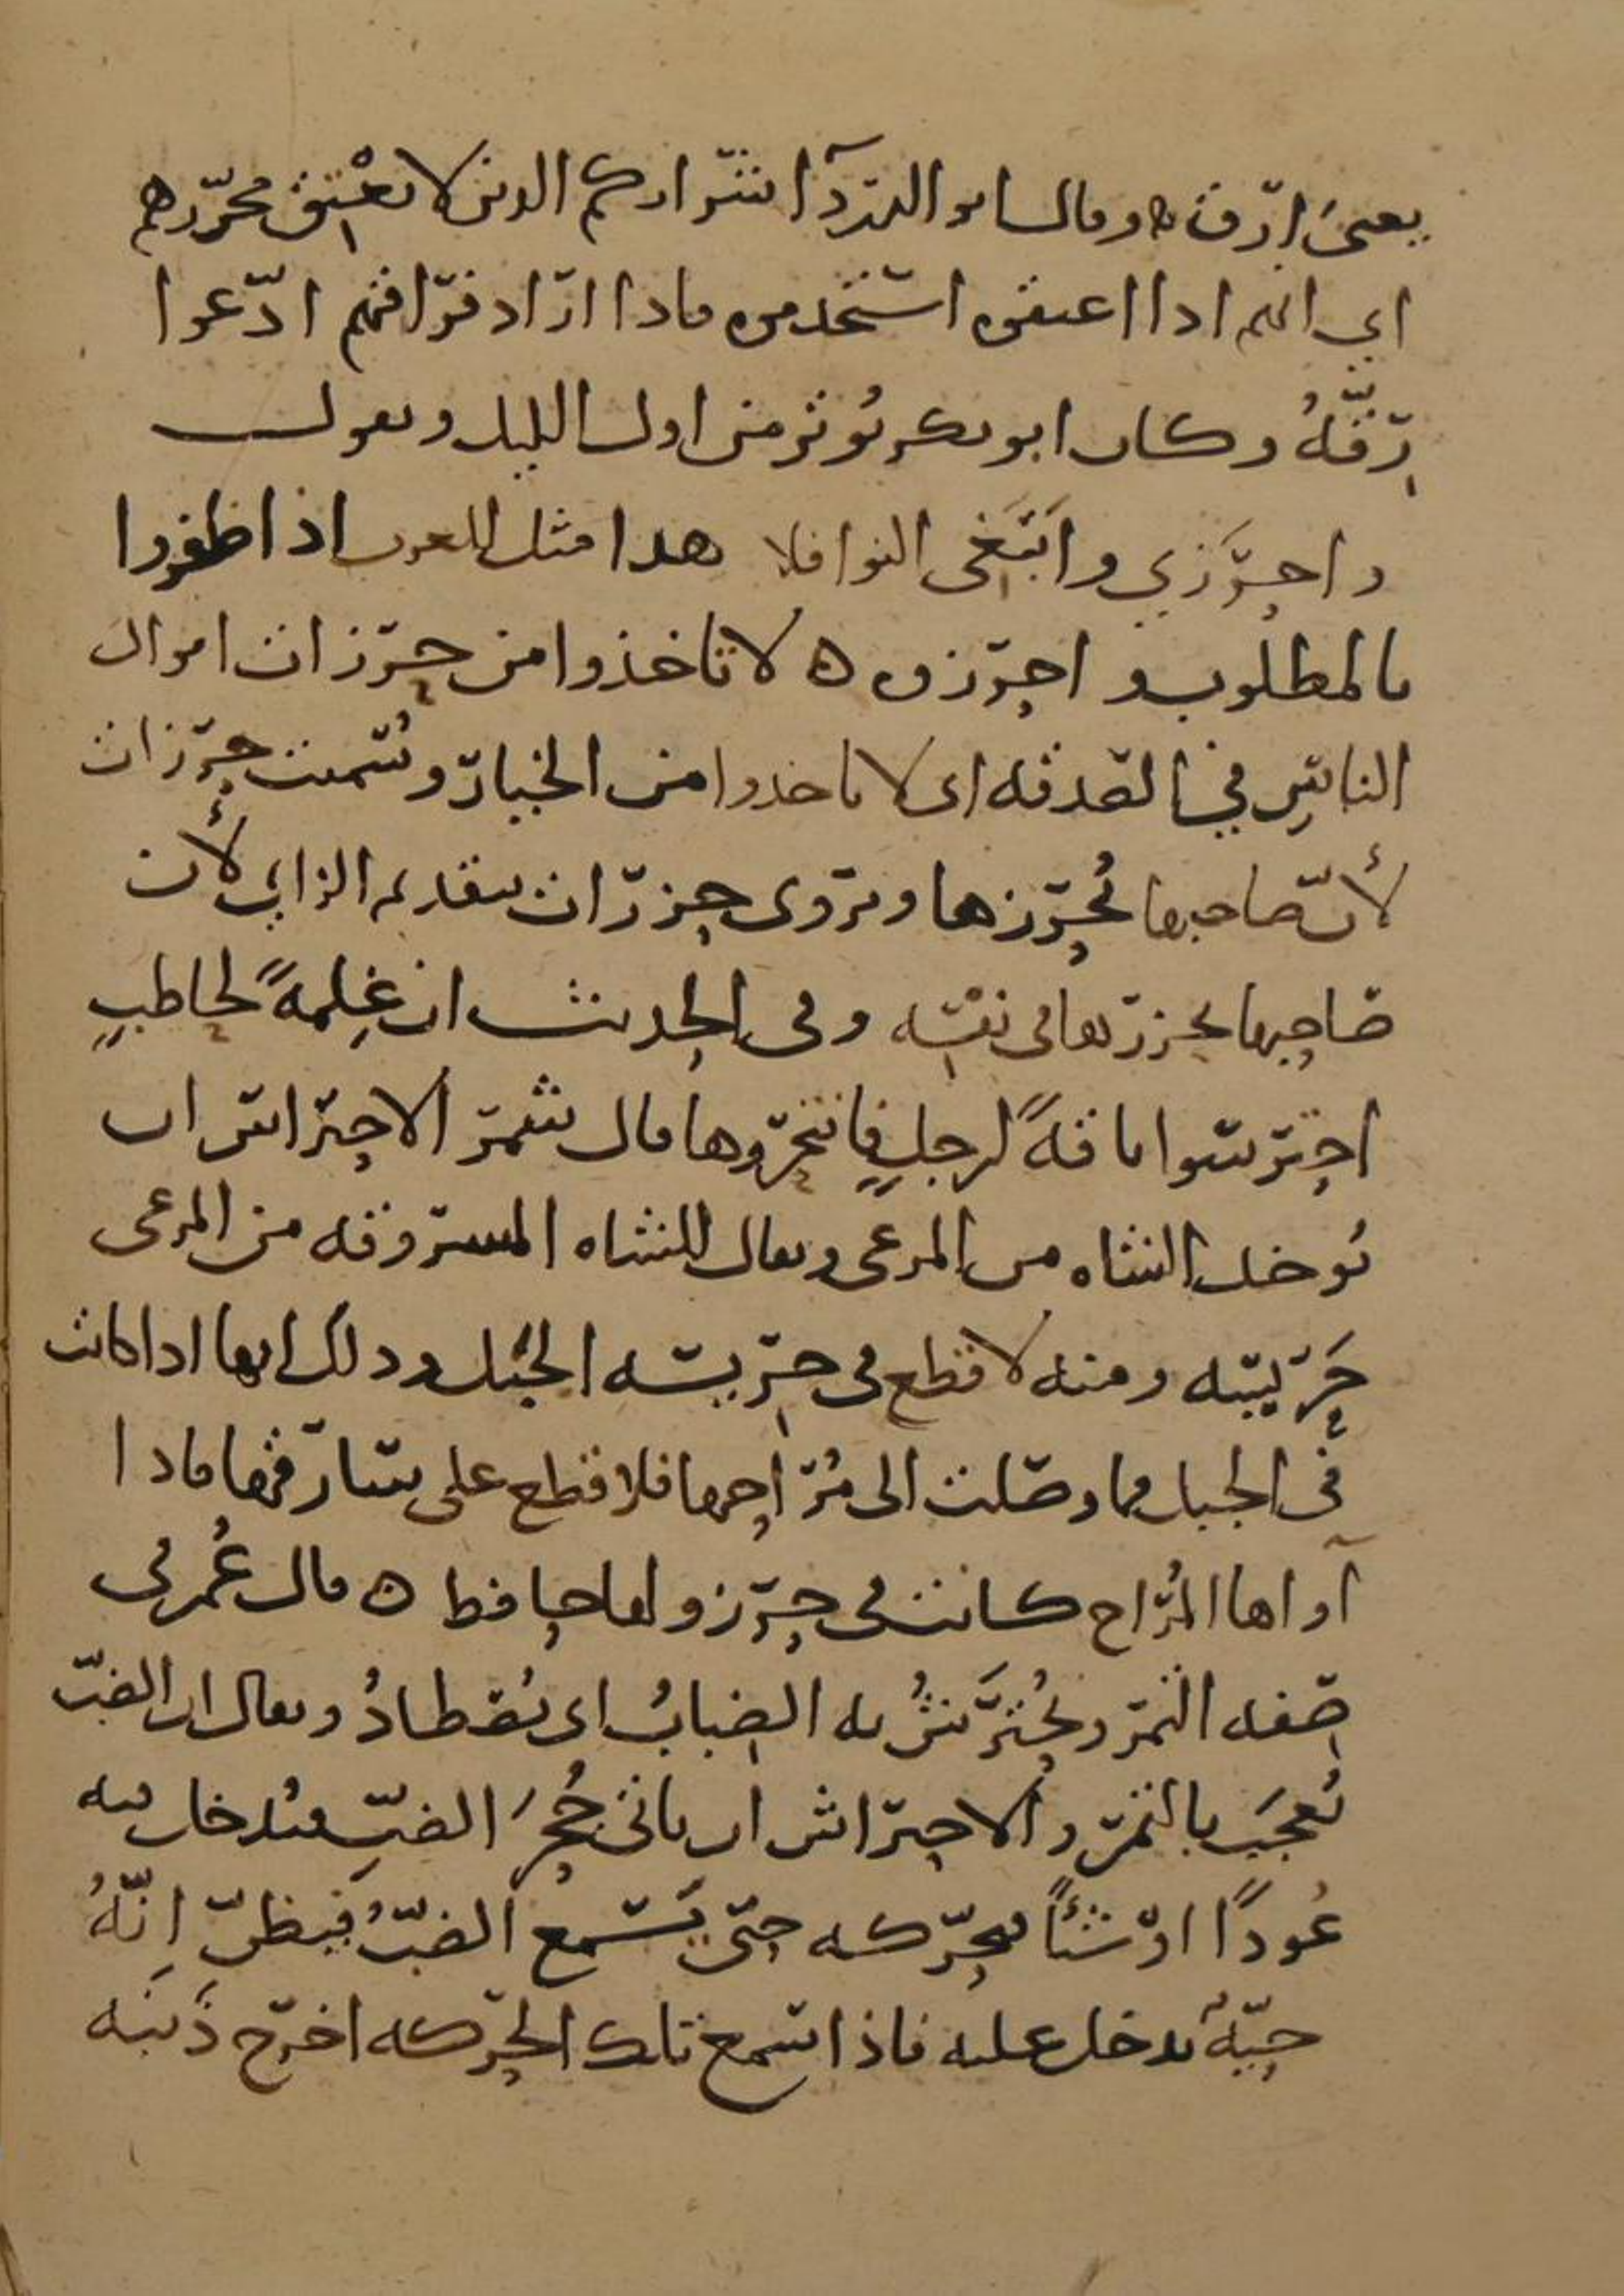 يعنى ارق ه وقال ابو الدرداء شراركم الذين لا يعتق محرّرهم
اي انهم اذا اعتقوه استخدموه فاذا اراد فراقهم ادّعوا
رقّهُ وكان ابو بكر يُوتر من اول الليل ويقول
واحرَزي وابتَغى النوافلا هذا مثل للعرب اذا ظفروا
بالمطلوب واحرزوه ه لا تاخذوا من حرزات اموال
الناس في الصدقه اى لا تاخذوا من الخيار وسُميت حرزات
لأن صاحبها يُحرزها ويروى حزرات بتقديم الزاي لأن
صاحبها يحزرها في نفسه وفى الحديث ان غِلمةً لحاطبٍ
احترسوا ناقةً لرجلٍ فانتحروها قال شمر الاحتراس ان
يُوخذ الشاه من المرعى ويقال للشاه المسروقه من المرعى
حَرِيسه ومنه لا قطع فى حريسه الجبل وذلك انها اذا كانت
فى الجبل فما وصلت الى مُراحها فلا قطع على سارقها فاذا
آواها المُراح كانت فى حرز ولها حافظ ه قال عُمر فى
صفه التمر وتُحترَشُ به الضبابُ اى تُصطادُ ويقال ان الضبّ
يُعجَب بالتمر والاحتراش ان ياتى جُحرَ الضبِّ فيُدخل فيه
عُودًا او شئاً فيحرّكه حتى يَسمع الضبُّ فيظنّ انّهُ
حيّةٌ تدخل عليه فاذا سمع تلك الحركه اخرج ذَنَبه